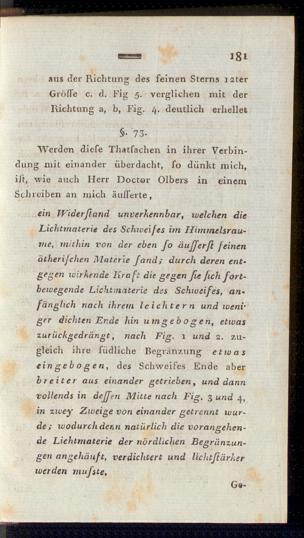 181
aus der Richtung des feinen Sterns 12ter
Gröſſe c. d. Fig 5. verglichen mit der
Richtung a, b, Fig. 4. deutlich erhellet
§. 73.
Werden dieſe Thatſachen in ihrer Verbin-
dung mit einander überdacht, ſo dünkt mich,
iſt, wie auch Herr Doctor Olbers in einem
Schreiben an mich äuſſerte,
ein Widerſtand unverkennbar, welchen die
Lichtmaterie des Schweifes im Himmelsrau-
me, mithin von der eben ſo äuſſerſt feinen
ätheriſchen Materie fand; durch deren ent-
gegen wirkende Kraft die gegen ſie ſich fort-
bewegende Lichtmaterie des Schweifes, an-
fänglich nach ihrem leichtern und weni-
ger dichten Ende hin umgebogen, etwas
zurückgedrängt, nach Fig. 1 und 2. zu-
gleich ihre ſüdliche Begränzung etwas
eingebogen, des Schweifes Ende aber
breiter aus einander getrieben, und dann
vollends in deſſen Mitte nach Fig. 3 und 4,
in zwey Zweige von einander getrennt wur-
de; wodurch denn natürlich die vorangehen-
de Lichtmaterie der nördlichen Begränzun-
gen angehäuft, verdichtert und lichtſtärker
werden muſste.
Ge-